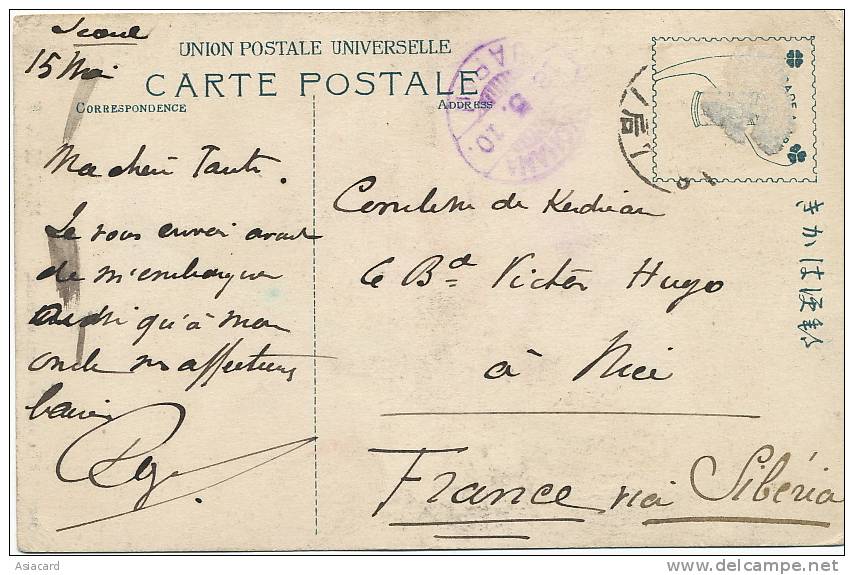 Seoul
15 Mai
UNION POSTALE UNIVERSELLE
CARTE POSTALE
CORRESPONDENCE
ADDRESS
Ma chère Tante.
Je vous envoie avant
de m'embarquer
aussi qu'à mon
oncle mes affectueux
baisers
Comtesse de
6 Bd Victor Hugo
à Nice
France via Sibéria
きかは便郵
5. 10.
Asiacard
www.delcampe.net